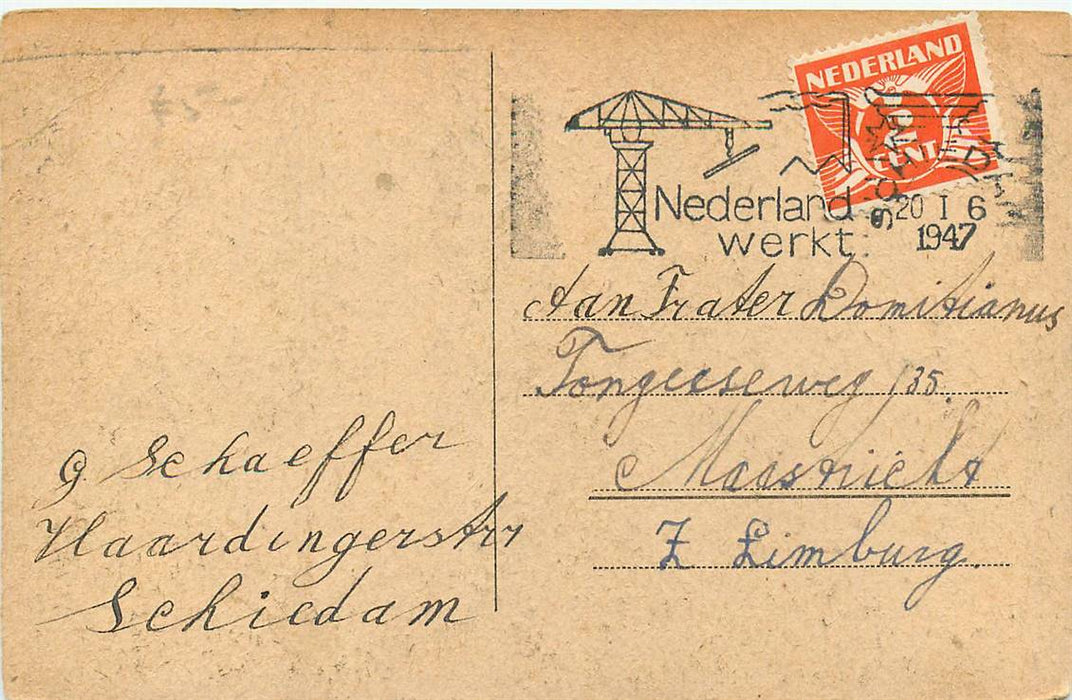 NEDERLAND
2
CENT
Nederland
werkt.
20 I 6
1947
Aan Frater Domitianus
Tongerseweg 135
Maastricht
Z Limburg
G Schaeffer
Vlaardingerstr
Schiedam